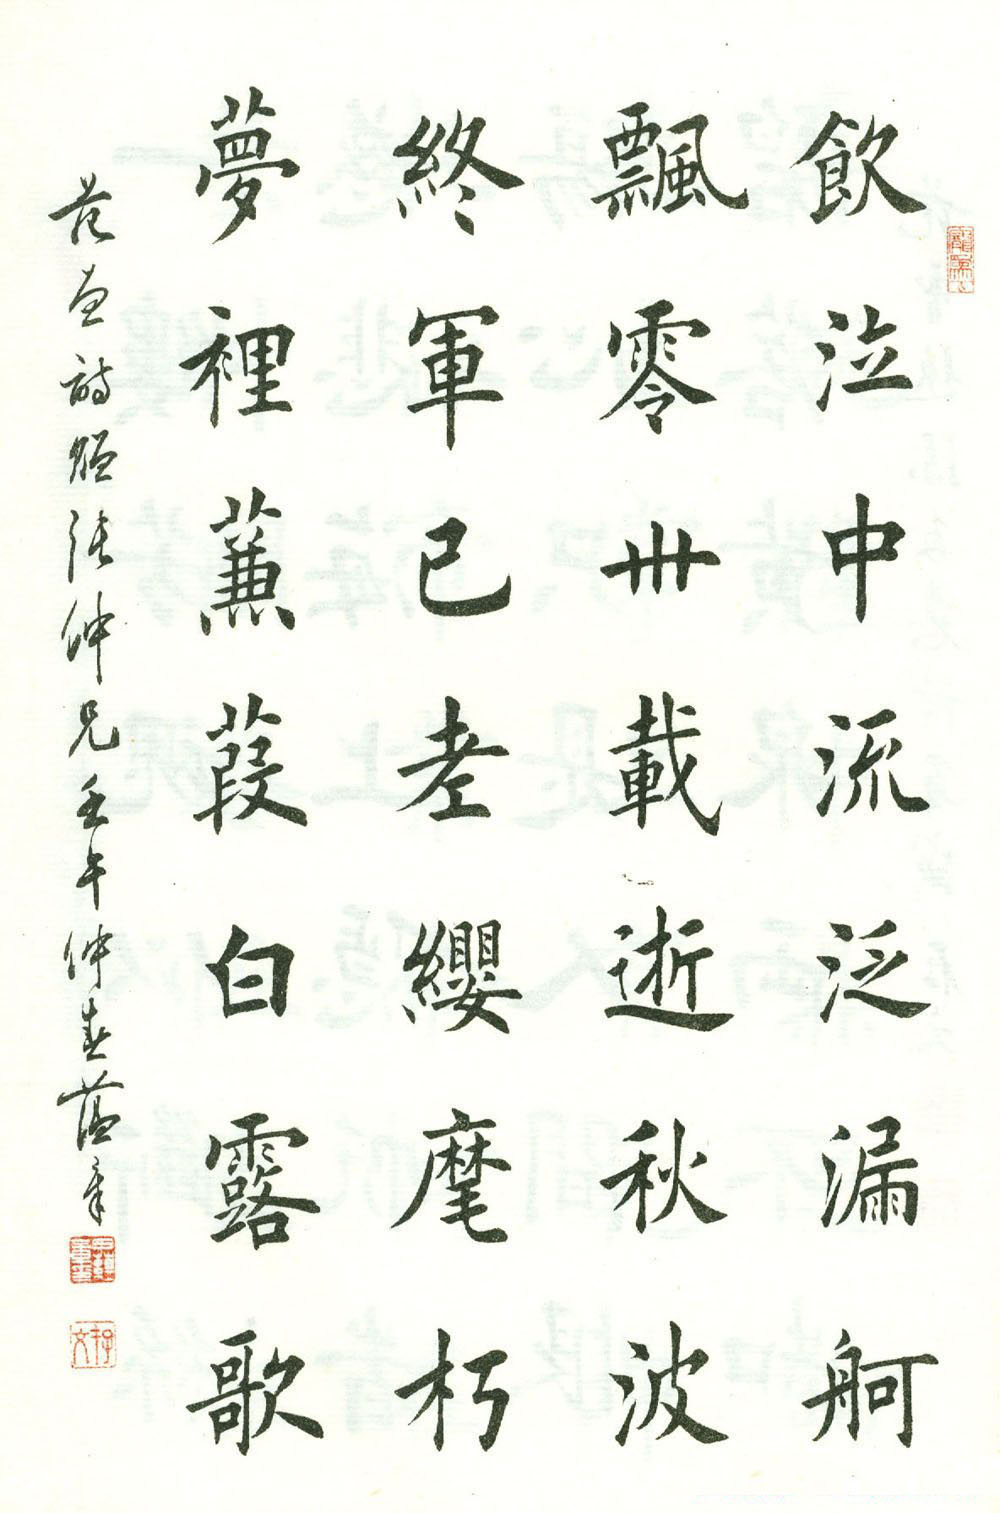 飲泣中流泛漏舸
飄零卅載逝秋波
終軍已老纓麾朽
夢裡蒹葭白露歌
詩贈張仲兄壬午仲春蘊章